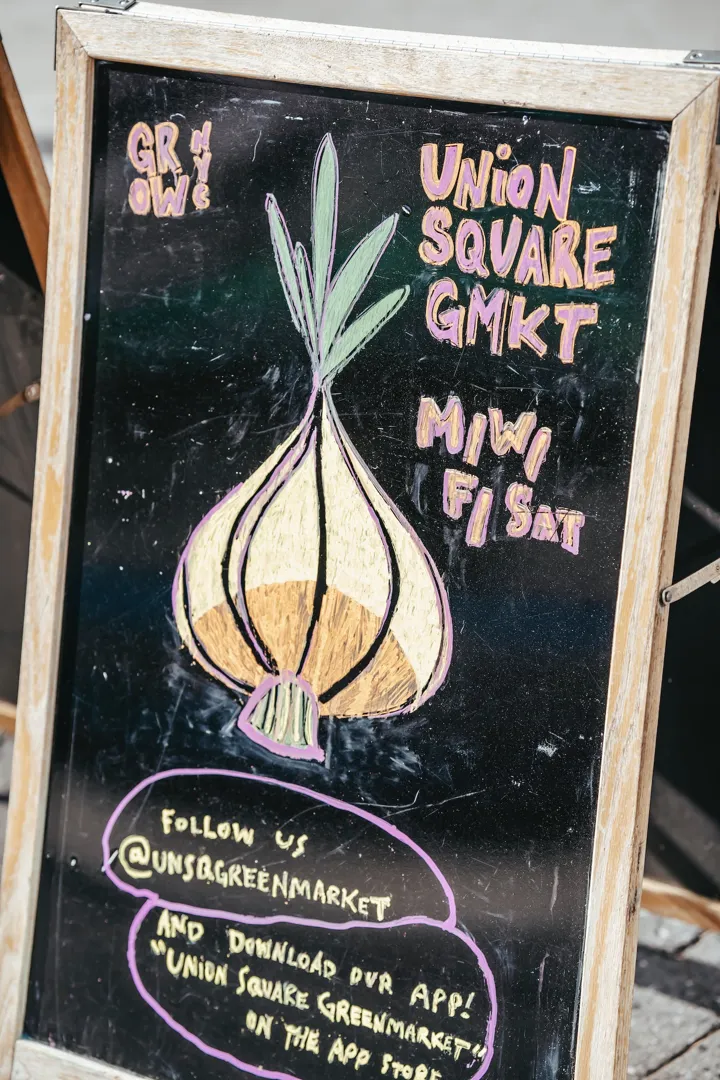 GR NYC
OW
UNION
SQUARE
GMKT
M/W/
F/SAT
FOLLOW US
@UNSQGREENMARKET
AND DOWNLOAD OUR APP!
"UNION SQUARE GREENMARKET"
ON THE APP STORE